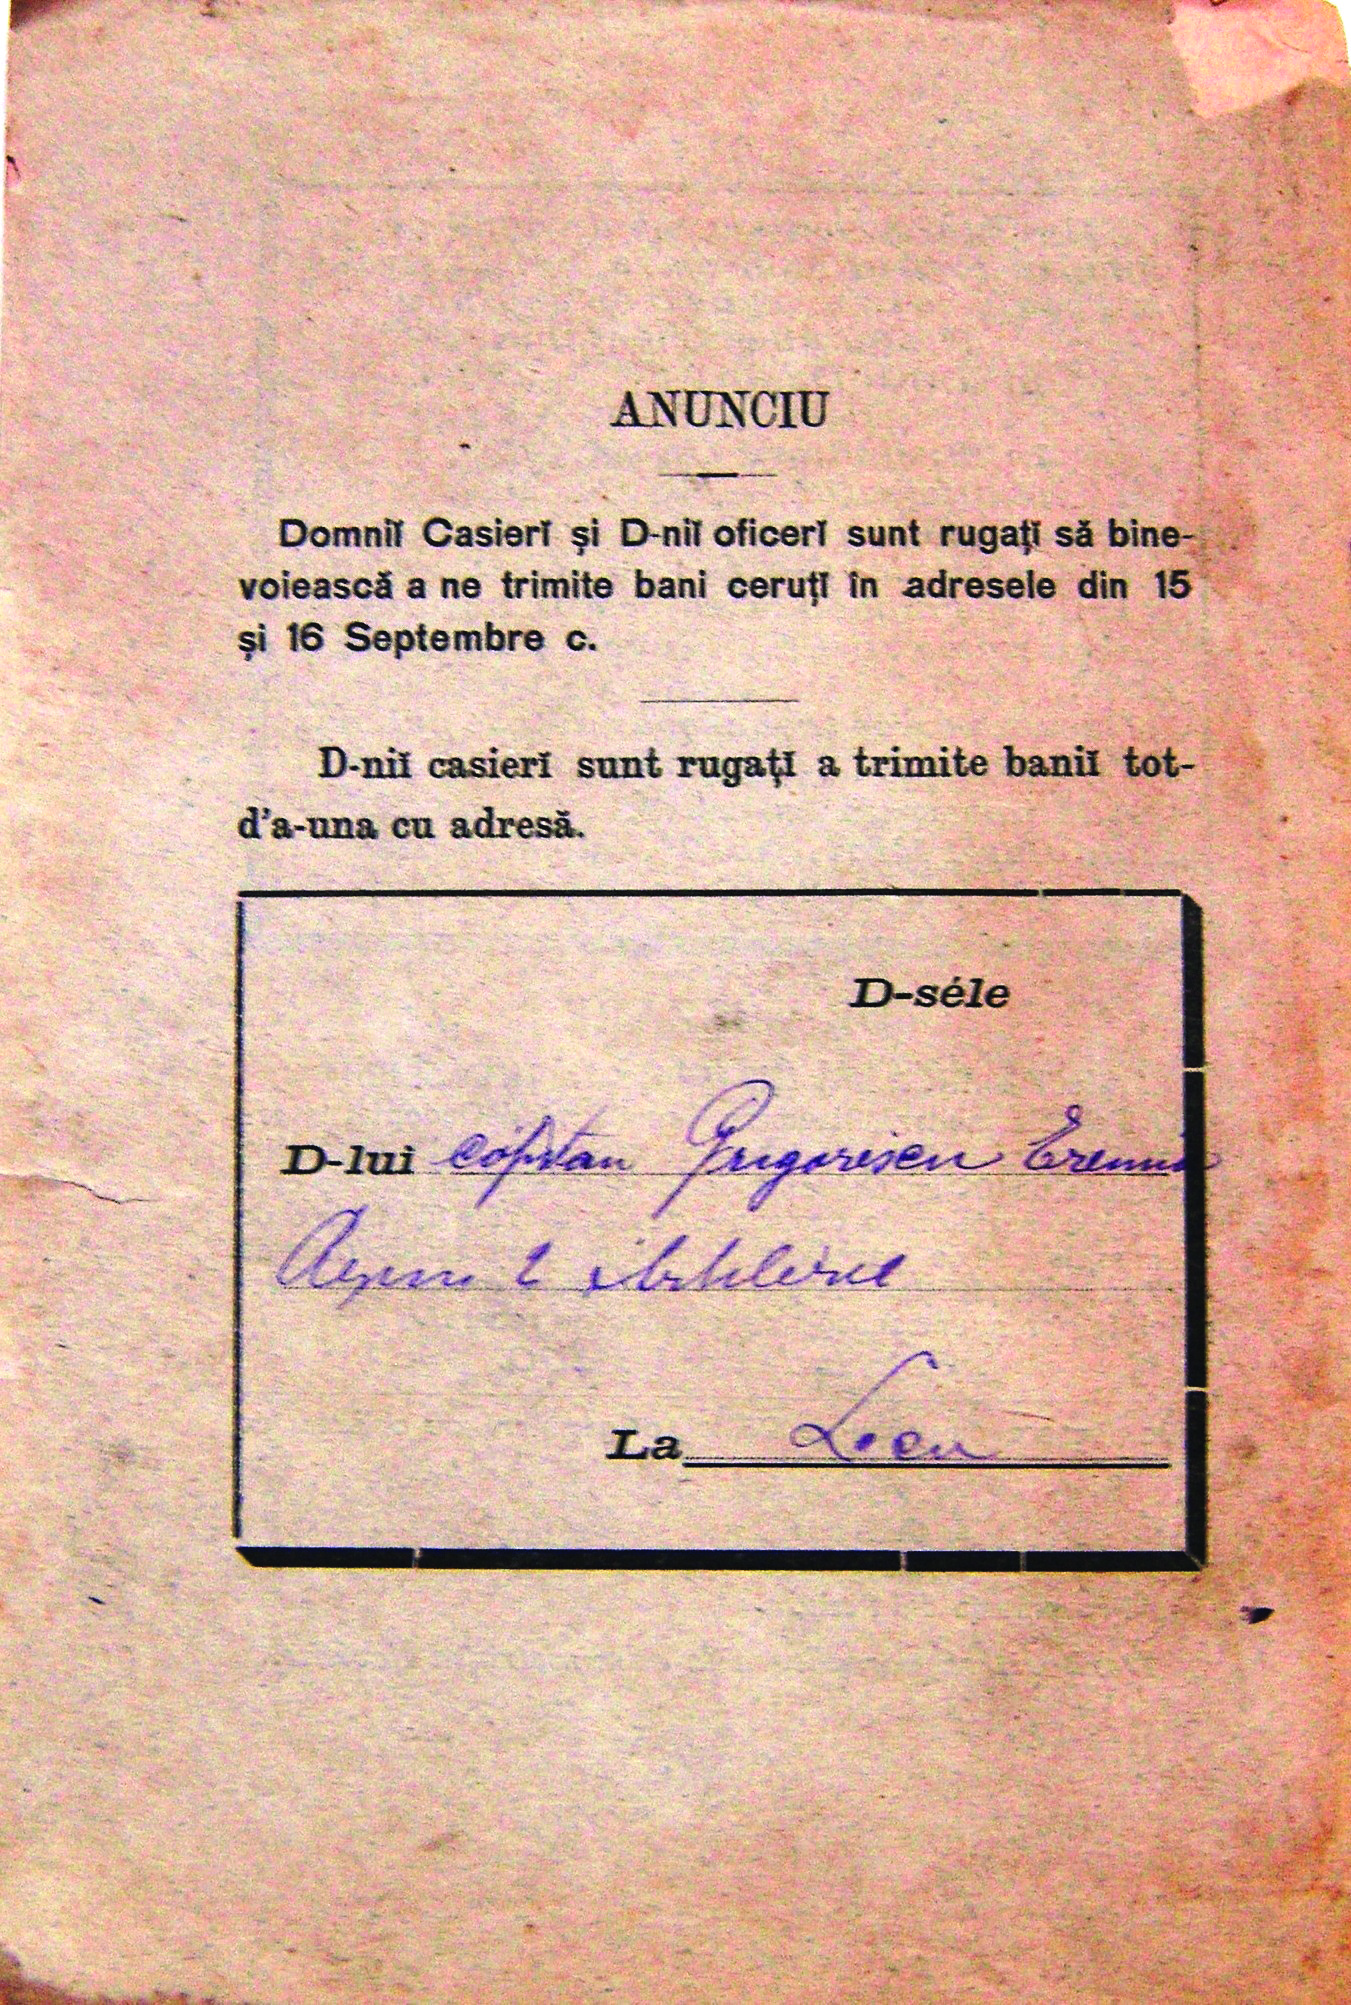 ANUNCIU
Domniĭ Casierĭ și D-niĭ oficerĭ sunt rugațĭ să bine-
voiească a ne trimite bani ceruțĭ în adresele din 15
și 16 Septembre c.
D-niĭ casierĭ sunt rugațĭ a trimite baniĭ tot-
d'a-una cu adresă.
D-séle
D-lui căpitan Grigorescu Eremia
2 Artilerie
La Locu